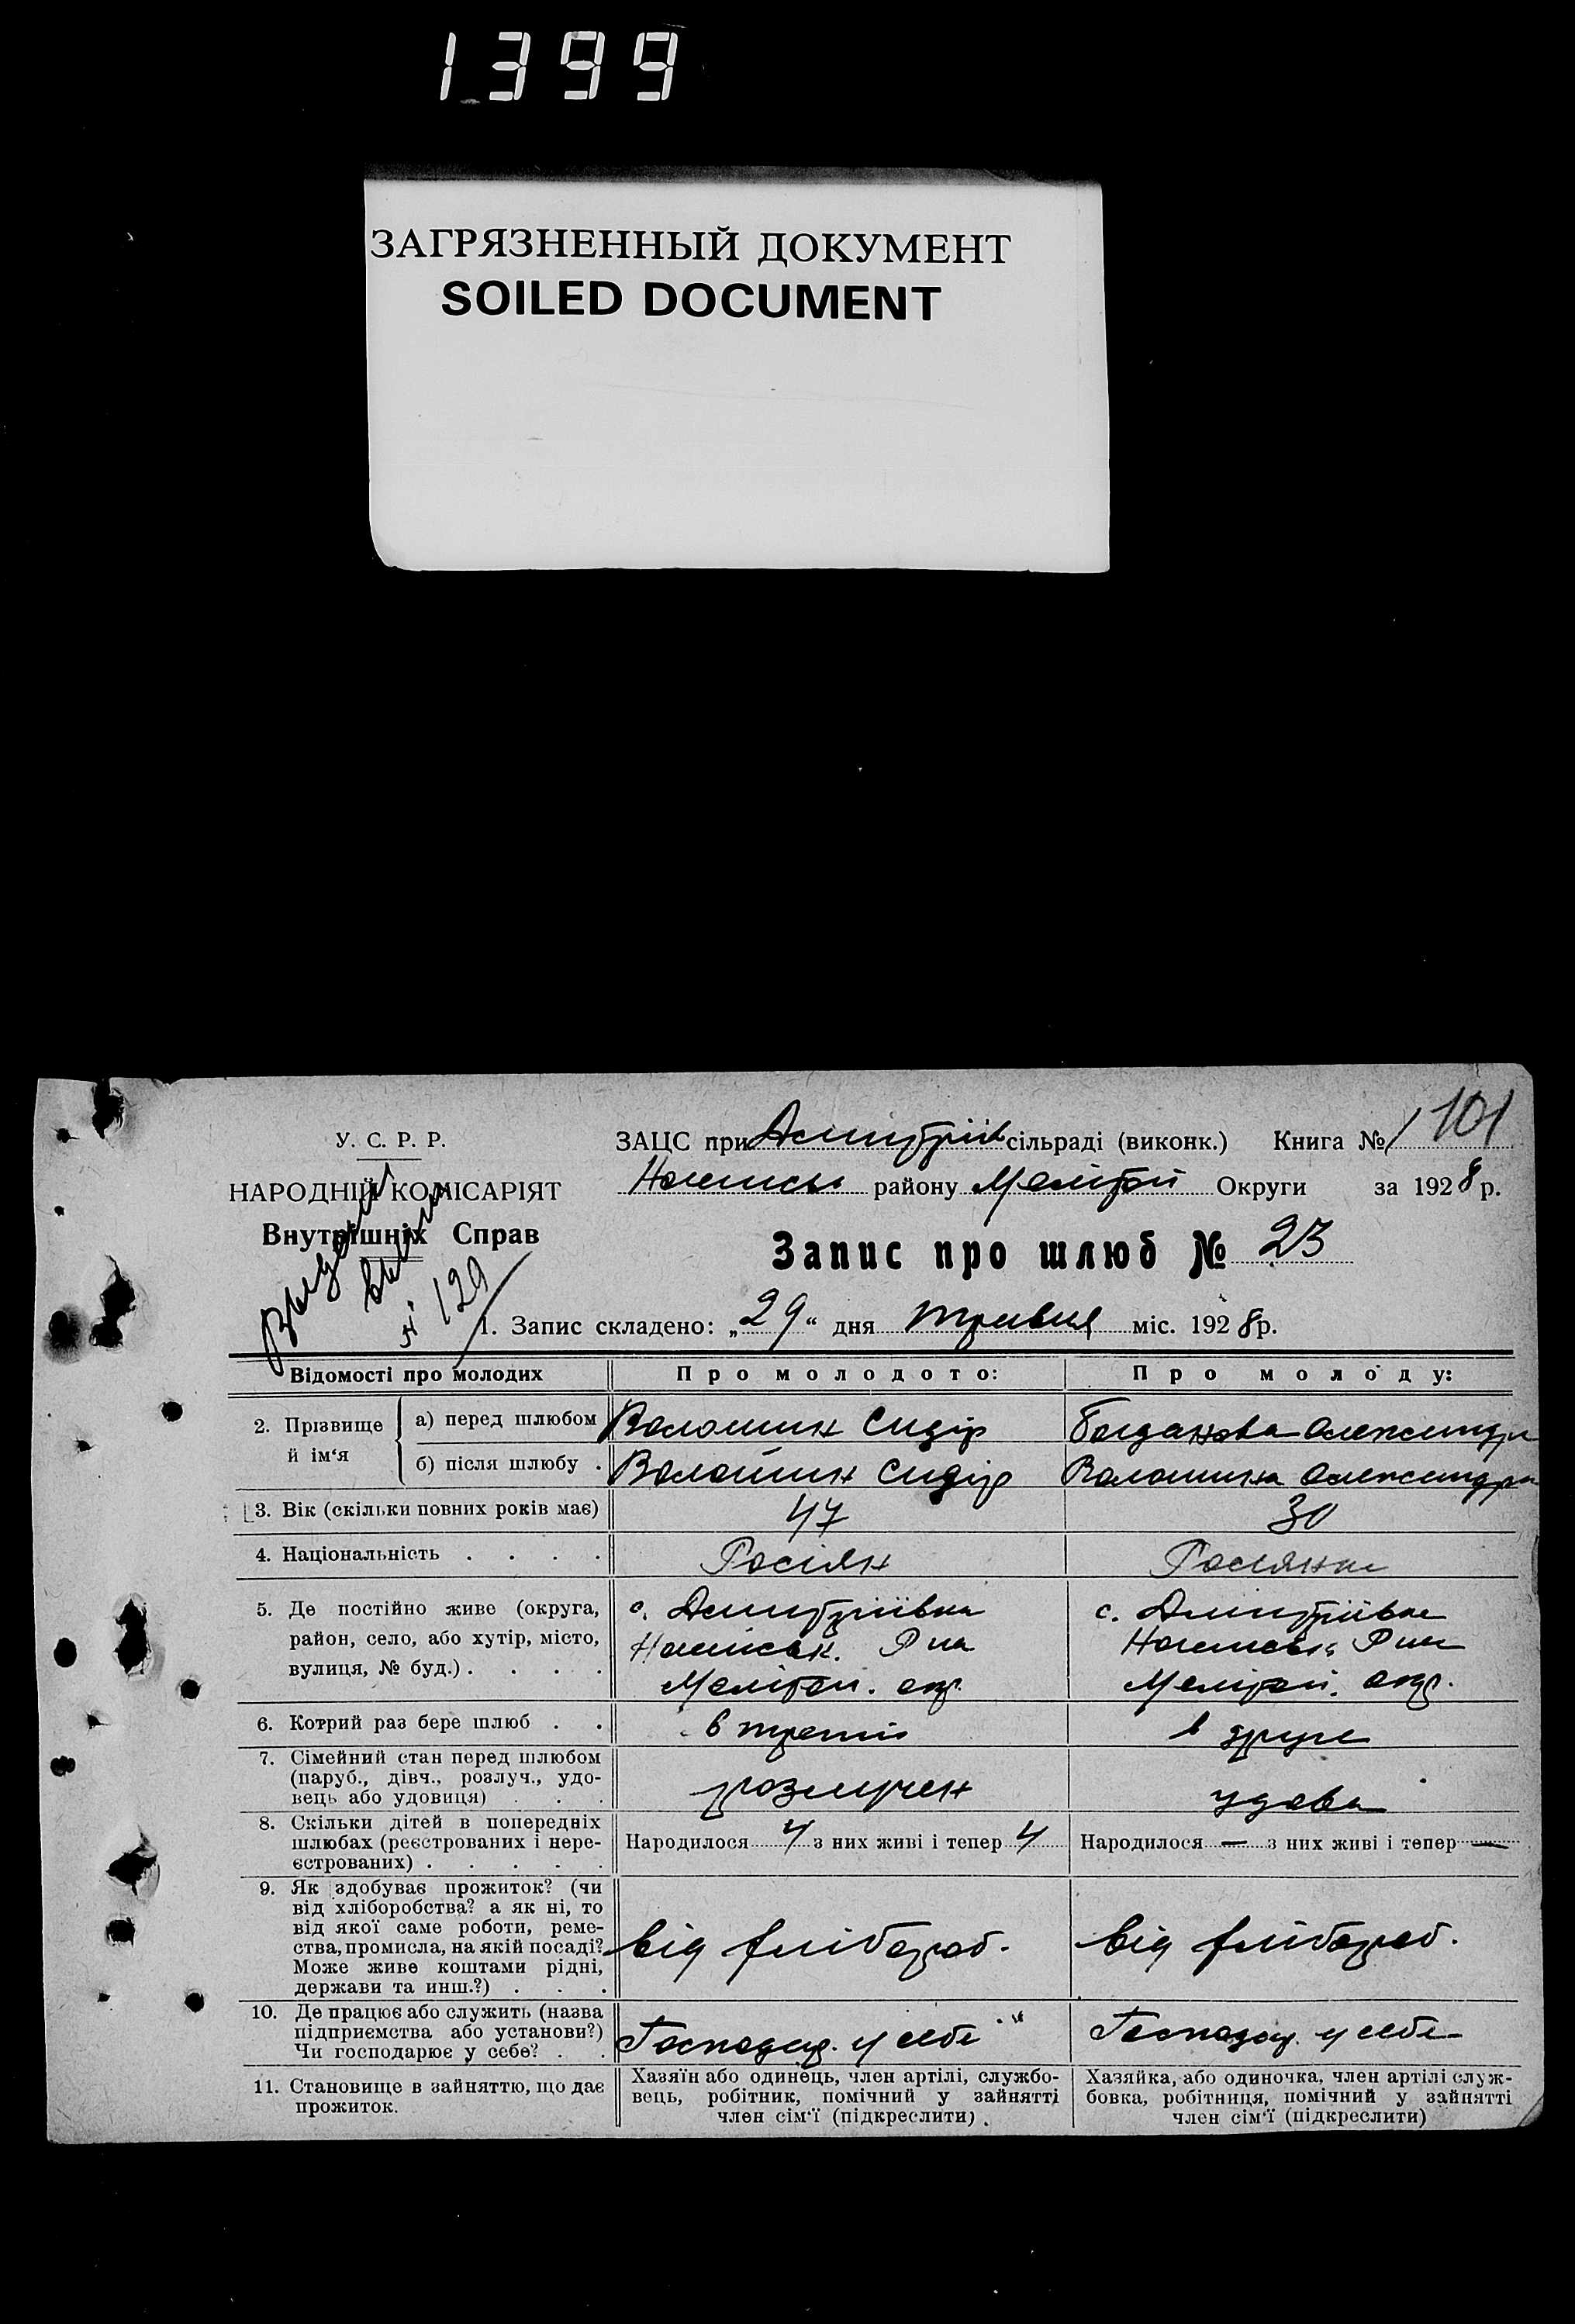 1399
ЗАГРЯЗНЕННЫЙ ДОКУМЕНТ
SOILED DOCUMENT
У. С. Р. Р.
НАРОДНІЙ КОМІСАРІЯТ
Внутрішніх Справ
№ 129
ЗАЦС при Дмитріїв сільраді (виконк.) Книга № 1 101
району Мелітоп Округи за 1928 р.
Запис про шлюб № 23
1. Запис складено: „29“ дня травня міс. 1928 р.
Відомості про молодих Про молодого: Про молоду:
2. Прізвище й ім‘я
а) перед шлюбом Волошин Сидір Богданова Олександра
б) після шлюбу . Волошин Сидір Волошина Олександра
3. Вік (скільки повних років має) 47 30
4. Національність . . . . Росіян Росіянка
5. Де постійно живе (округа,
район, село, або хутір, місто,
вулиця, № буд.) . . . .
с. Дмитріївка
Р на
Мелітоп. окр.
с. Дмитріївка
Р на
Мелітоп. окр.
6. Котрий раз бере шлюб . . в третій в друге
7. Сімейний стан перед шлюбом
(паруб., дівч., розлуч., удо-
вець або удовиця) . . .
розлучен удова
8. Скільки дітей в попередніх
шлюбах (реєстрованих і нере-
єстрованих) . . . . .
Народилося 4 з них живі і тепер 4 Народилося — з них живі і тепер —
9. Як здобуває прожиток? (чи
від хліборобства? а як ні, то
від якої саме роботи, реме-
ства, промисла, на якій посаді?
Може живе коштами рідні,
держави та инш.?) . . .
від хлібороб. від хлібороб.
10. Де працює або служить (назва
підприємства або установи?)
Чи господарює у себе? . .
Господар. у себе Господар. у себе
11. Становище в зайняттю, що дає
прожиток.
Хазяїн або одинець, член артілі, службо-
вець, робітник, помічний у зайнятті
член сім‘ї (підкреслити) .
Хазяйка, або одиночка, член артілі служ-
бовка, робітниця, помічний у зайнятті
член сім‘ї (підкреслити)